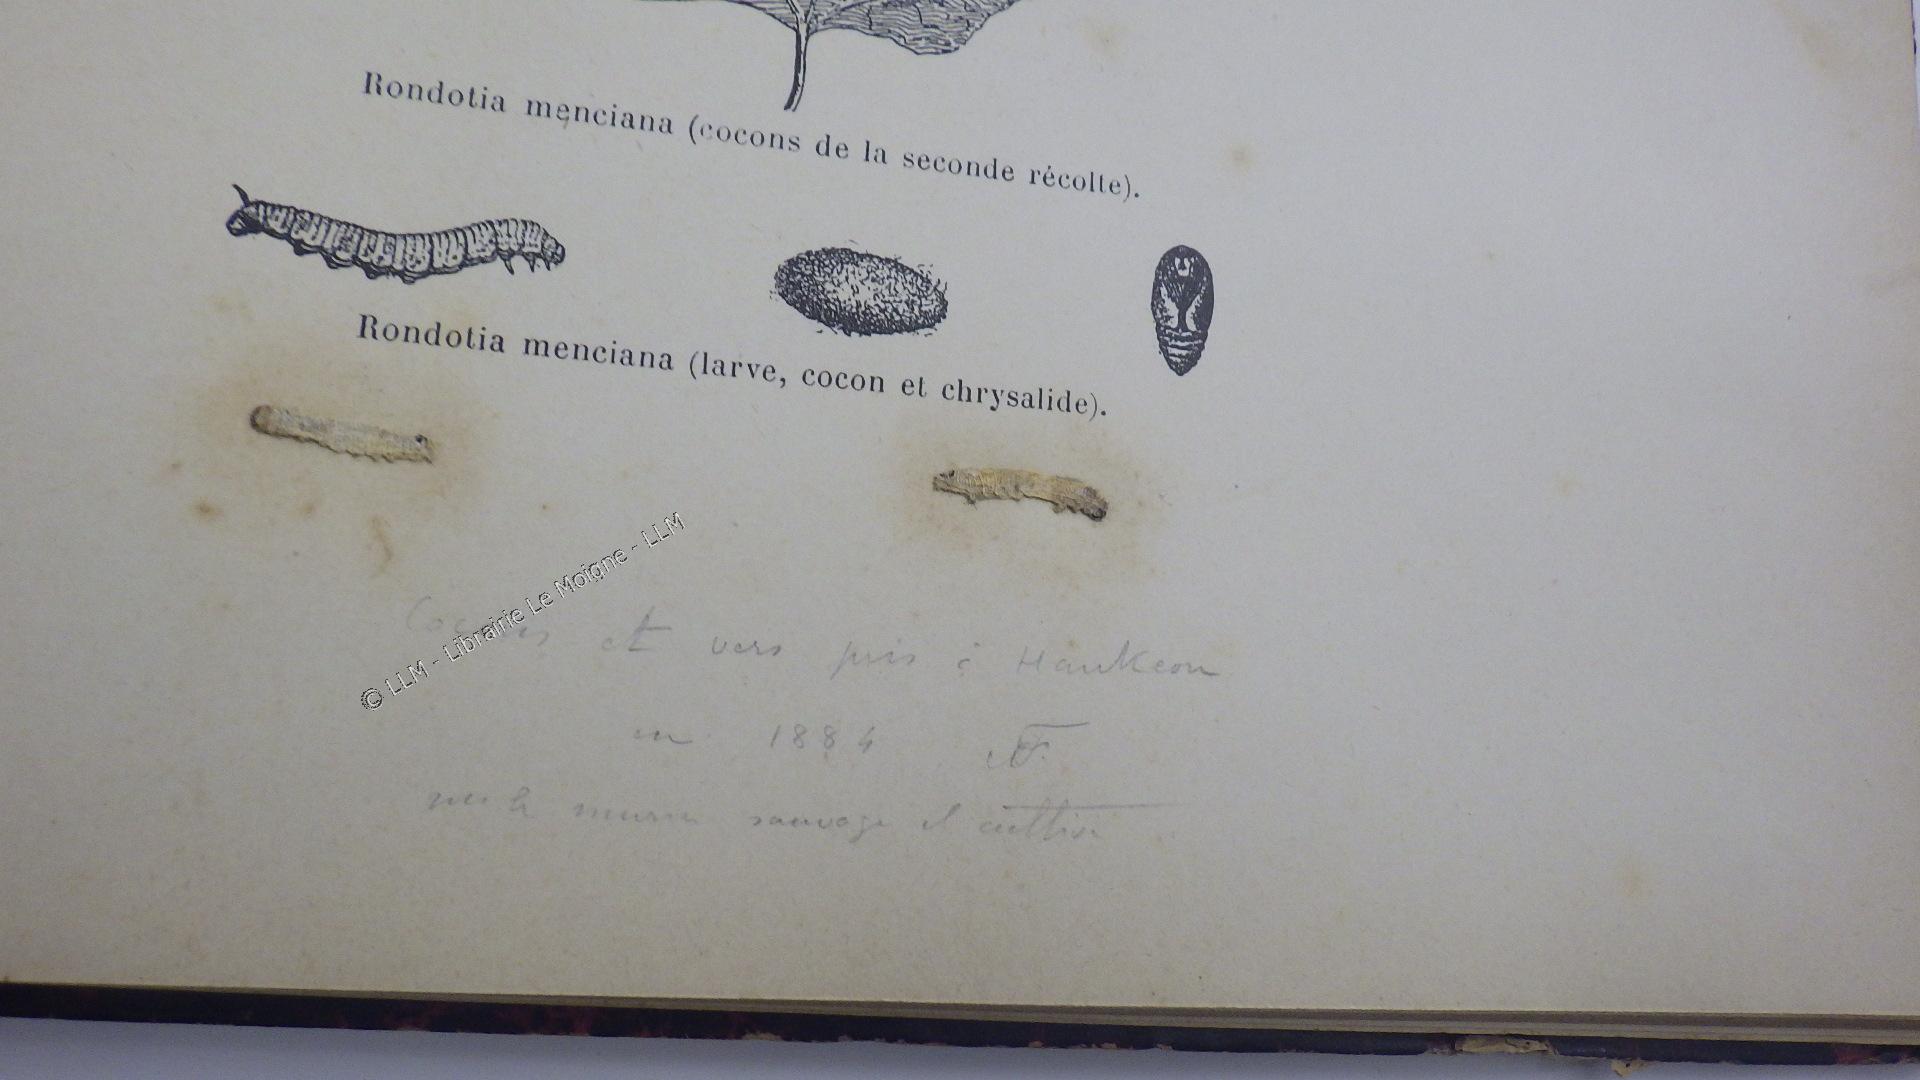 Rondotia menciana (cocons de la seconde récolte).
Rondotia menciana (larve, cocon et chrysalide).
© LLM - Librairie Le Moigne - LLM
Cocons et vers pris à Hankeou
en 1884
sur le murier sauvage et cultivé